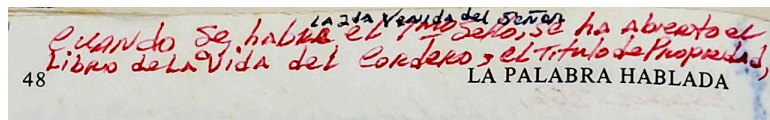 LA 2da Venida del Señor
CUANDO Se habla el 7mo Sello, se ha Abierto el
Libro de La Vida del Cordero, el Titulo de Propiedad,
48 LA PALABRA HABLADA